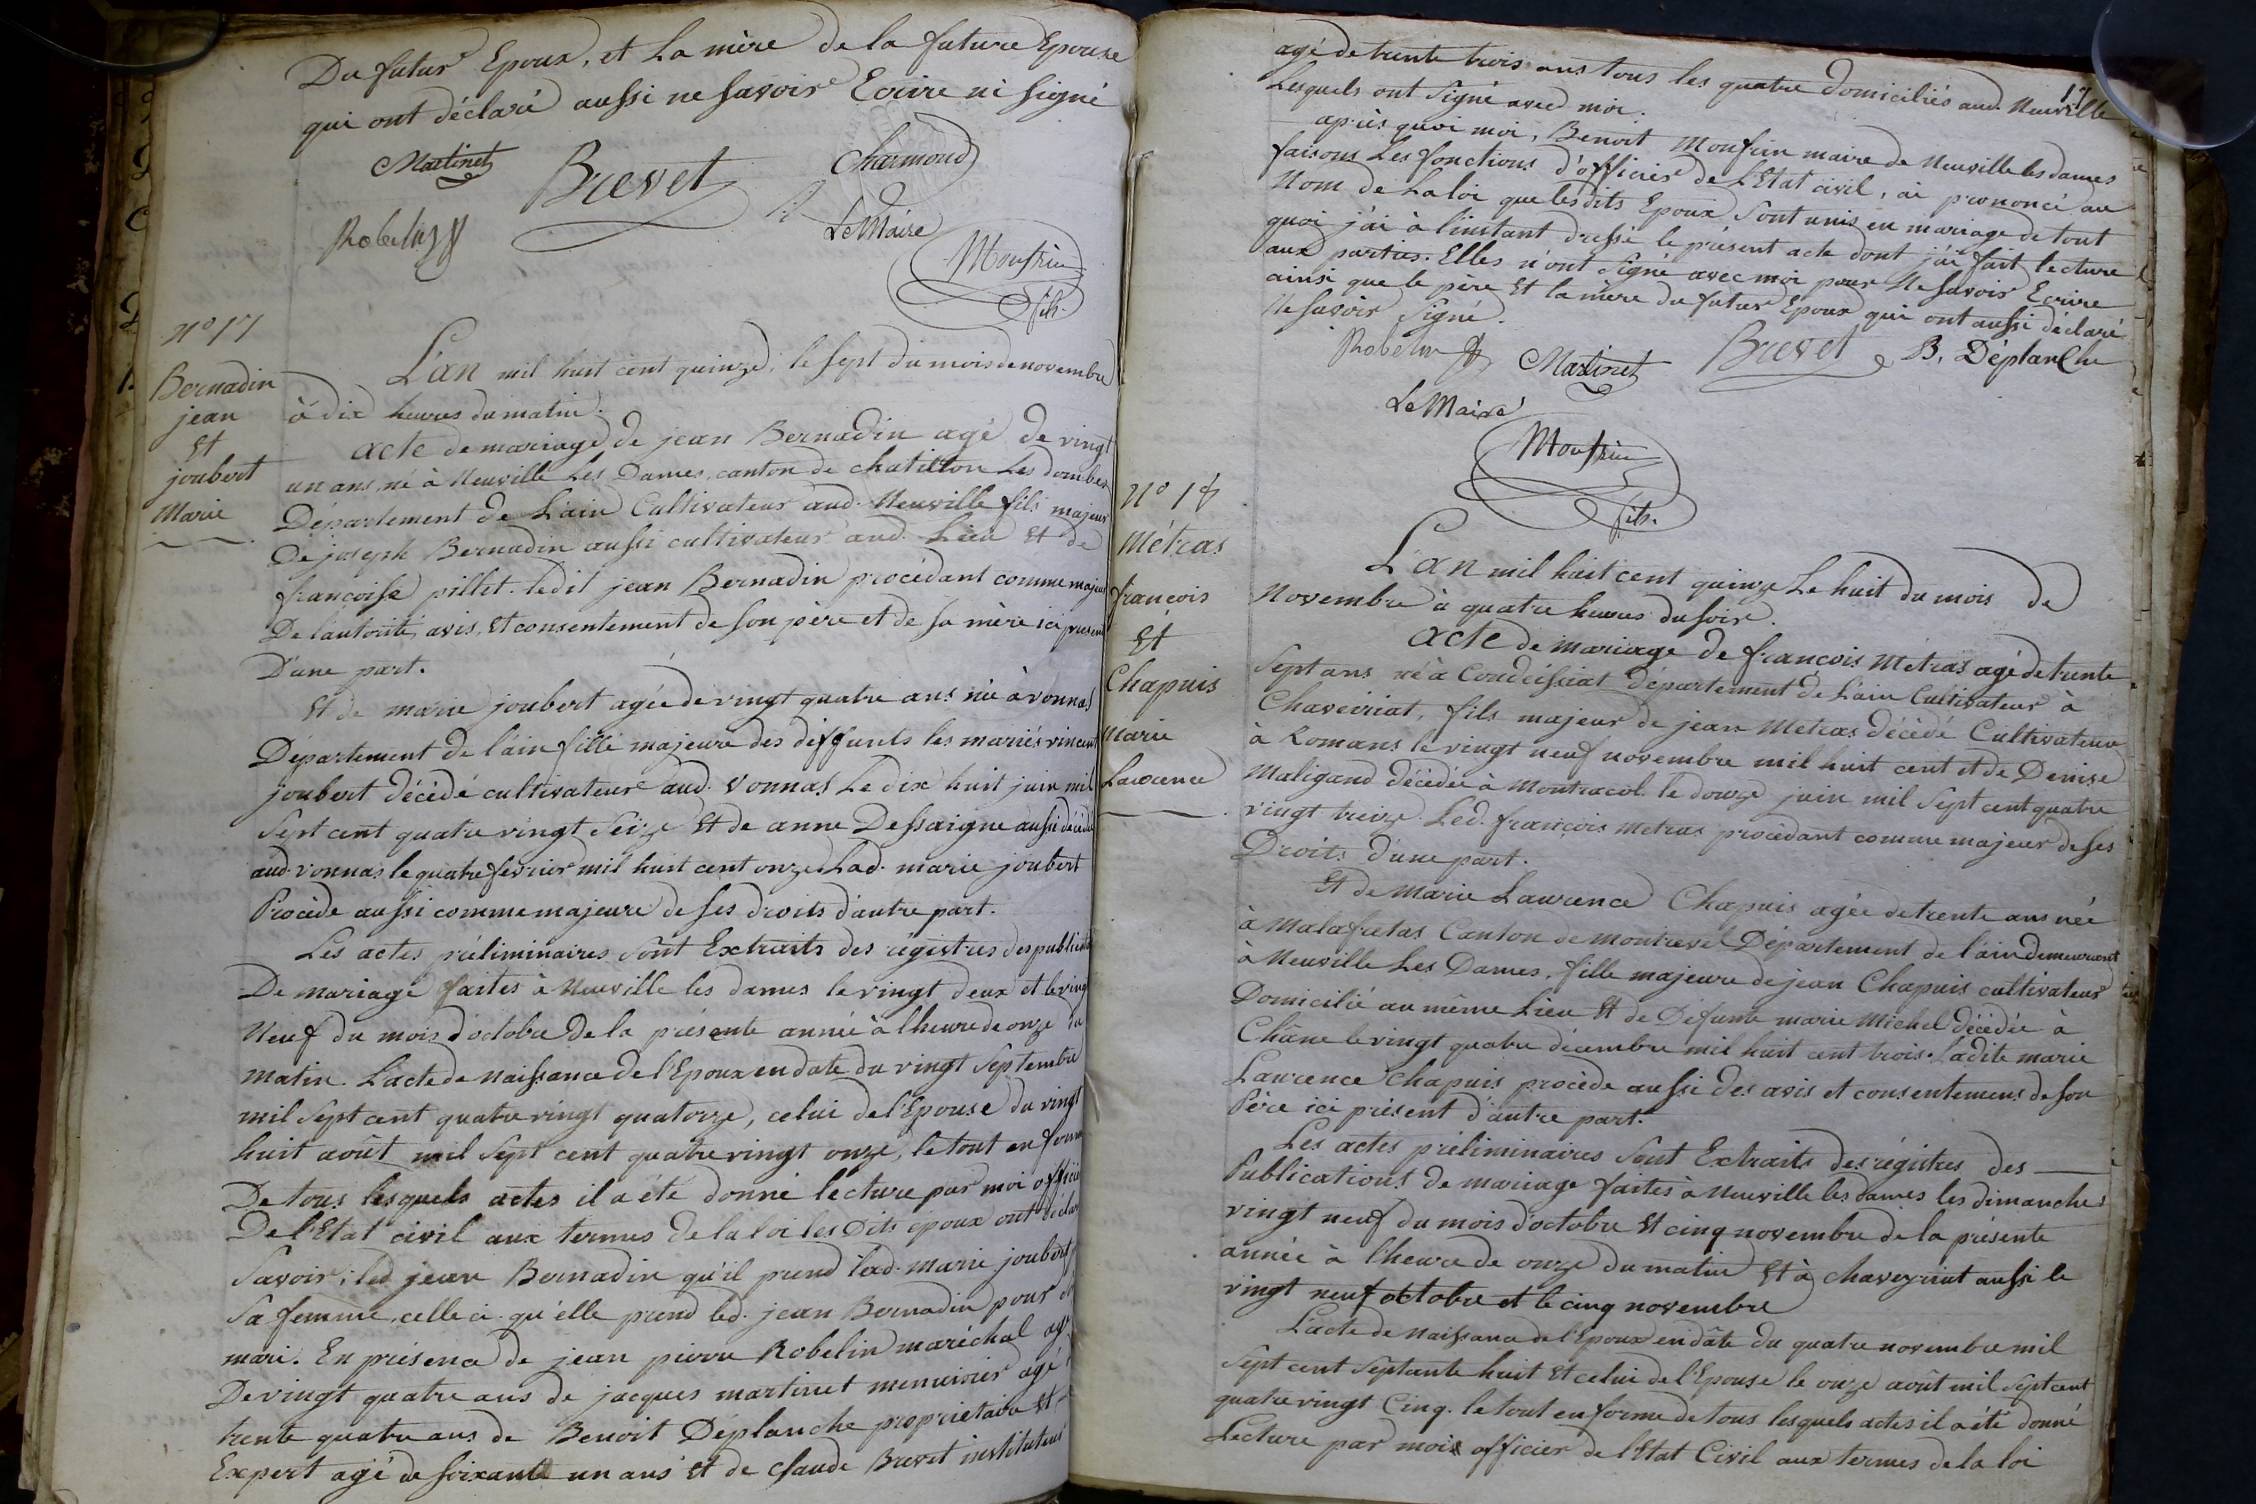 Du futur Epoux, et la mère de la future Epouse
qui ont déclaré aussi ne savoir Ecrire ni signé
Martinet
Brevet
Charmond
Robelin
Le Maire
Monfrin
fils.
N° 17
Bernadin
jean
Et
joubert
Marie
L'an mil huit cent quinze, le sept du mois de novembre
à dix heures du matin.
acte de mariage de jean Bernadin agé de vingt
un ans, né à Neuville Les Dames, canton de chatillon Les dombes
Département de L'ain Cultivateur aud. Neuville fils majeur
De joseph Bernadin aussi cultivateur aud. Lieu Et de
francoise pillet. ledit jean Bernadin procédant comme majeur
De l'autorité, avis, Et consentement de son père et de sa mère ici present
D'une part.
Et de marie joubert agée de vingt quatre ans née à vonnas
Département de l'ain fille majeure des deffunts les mariés vincent
joubert décédé cultivateur aud. Vonnas Le dix huit juin mil
Sept cent quatre vingt Seize Et de anne Dessaigne aussi décédé
aud. vonnas le quatre fevrier mil huit cent onze. Lad. marie joubert
Procède aussi comme majeure de ses droits d'autre part.
Les actes préliminaires sont Extraits des régistres des publications
De mariage faites à Neuville les dames le vingt deux et le vingt
Neuf du mois d'octobre De la présente année à l'heure de onze du
matin. L'acte de Naissance de l'Epoux en date du vingt Septembre
mil Sept cent quatre vingt quatorze, celui de l'Epouse du vingt
huit août mil Sept cent quatre vingt onze, le tout en forme
De tous lesquels actes il a été donné lecture par moi officier
De l'Etat civil aux termes de la loi les Dits époux ont déclaré
Savoir; led. jean Bernadin qu'il prend lad. marie joubert p
Sa femme, celle ci qu'elle prend led. jean Bernadin pour
mari. En présence de jean pierre Robelin maréchal agé
De vingt quatre ans de jacques martinet menuisier agé
trente quatre ans de Benoit Déplanche propriétaire Et
Expert agé de soixante un ans Et de claude Brevet instituteur
17
agé de trente trois ans tous les quatre domiciliés aud. Neuville
Lesquels ont Signé avec moi.
après quoi moi, Benoit Monfrin maire de Neuville les dames
faisons Les fonctions d'officier de L'Etat civil, ai prononcé au
Nom de La loi que lesdits Epoux Sont unis en mariage de tout
quoi j'ai à l'instant dressé le présent acte dont j'ai fait lecture
aux parties. Elles n'ont Signé avec moi pour Ne Savoir Ecrire
ainsi que le père Et la mère du futur Epoux qui ont aussi déclaré
Ne Savoir Signé.
Robelin
Martinet
Brevet
B. Déplanche
Le Maire
Monfrin
fils.
N° 18
Métras
francois
Et
Chapuis
Marie
Laurence
L'an mil huit cent quinze Le huit du mois de
Novembre à quatre heures du soir.
acte de mariage de françois Métras agé de trente
Sept ans né à Condeissiat Département de L'ain Cultivateur à
Chaveiriat, fils majeur de jean Métras décédé Cultivateur
à Romans le vingt neuf novembre mil huit cent et de Denise
Maligand décédée à Montracol le douze juin mil Sept cent quatre
vingt treize. Led. françois Metras procédant comme majeur de ses
Droits d'une part.
Et de Marie Laurence Chapuis agée de trente ans née
à Malafretas Canton de montrevel Département de l'ain demeurant
à Neuville Les Dames, fille majeure de jean Chapuis cultivateur
Domicilié au même Lieu Et de Défunte marie Michel décédée à
Châne le vingt quatre décembre mil huit cent trois. Ladite marie
Laurence Chapuis procède aussi des avis et consentemens de son
Père ici présent d'autre part.
Les actes préliminaires Sont Extraits des régistres des
Publications de mariage faites à Neuville les dames les dimanches
vingt neuf du mois d'octobre Et cinq novembre de la présente
année à l'heure de onze du matin Et à chaveyriat aussi le
vingt neuf octobre et le cinq novembre
L'acte de Naissance de l'Epoux en dâte du quatre novembre mil
Sept cent Septante huit Et celui de l'Epouse le onze août mil Sept cent
quatre vingt Cinq. le tout en forme de tous lesquels actes il a été donné
Lecture par moi officier de l'Etat Civil aux termes de la loi